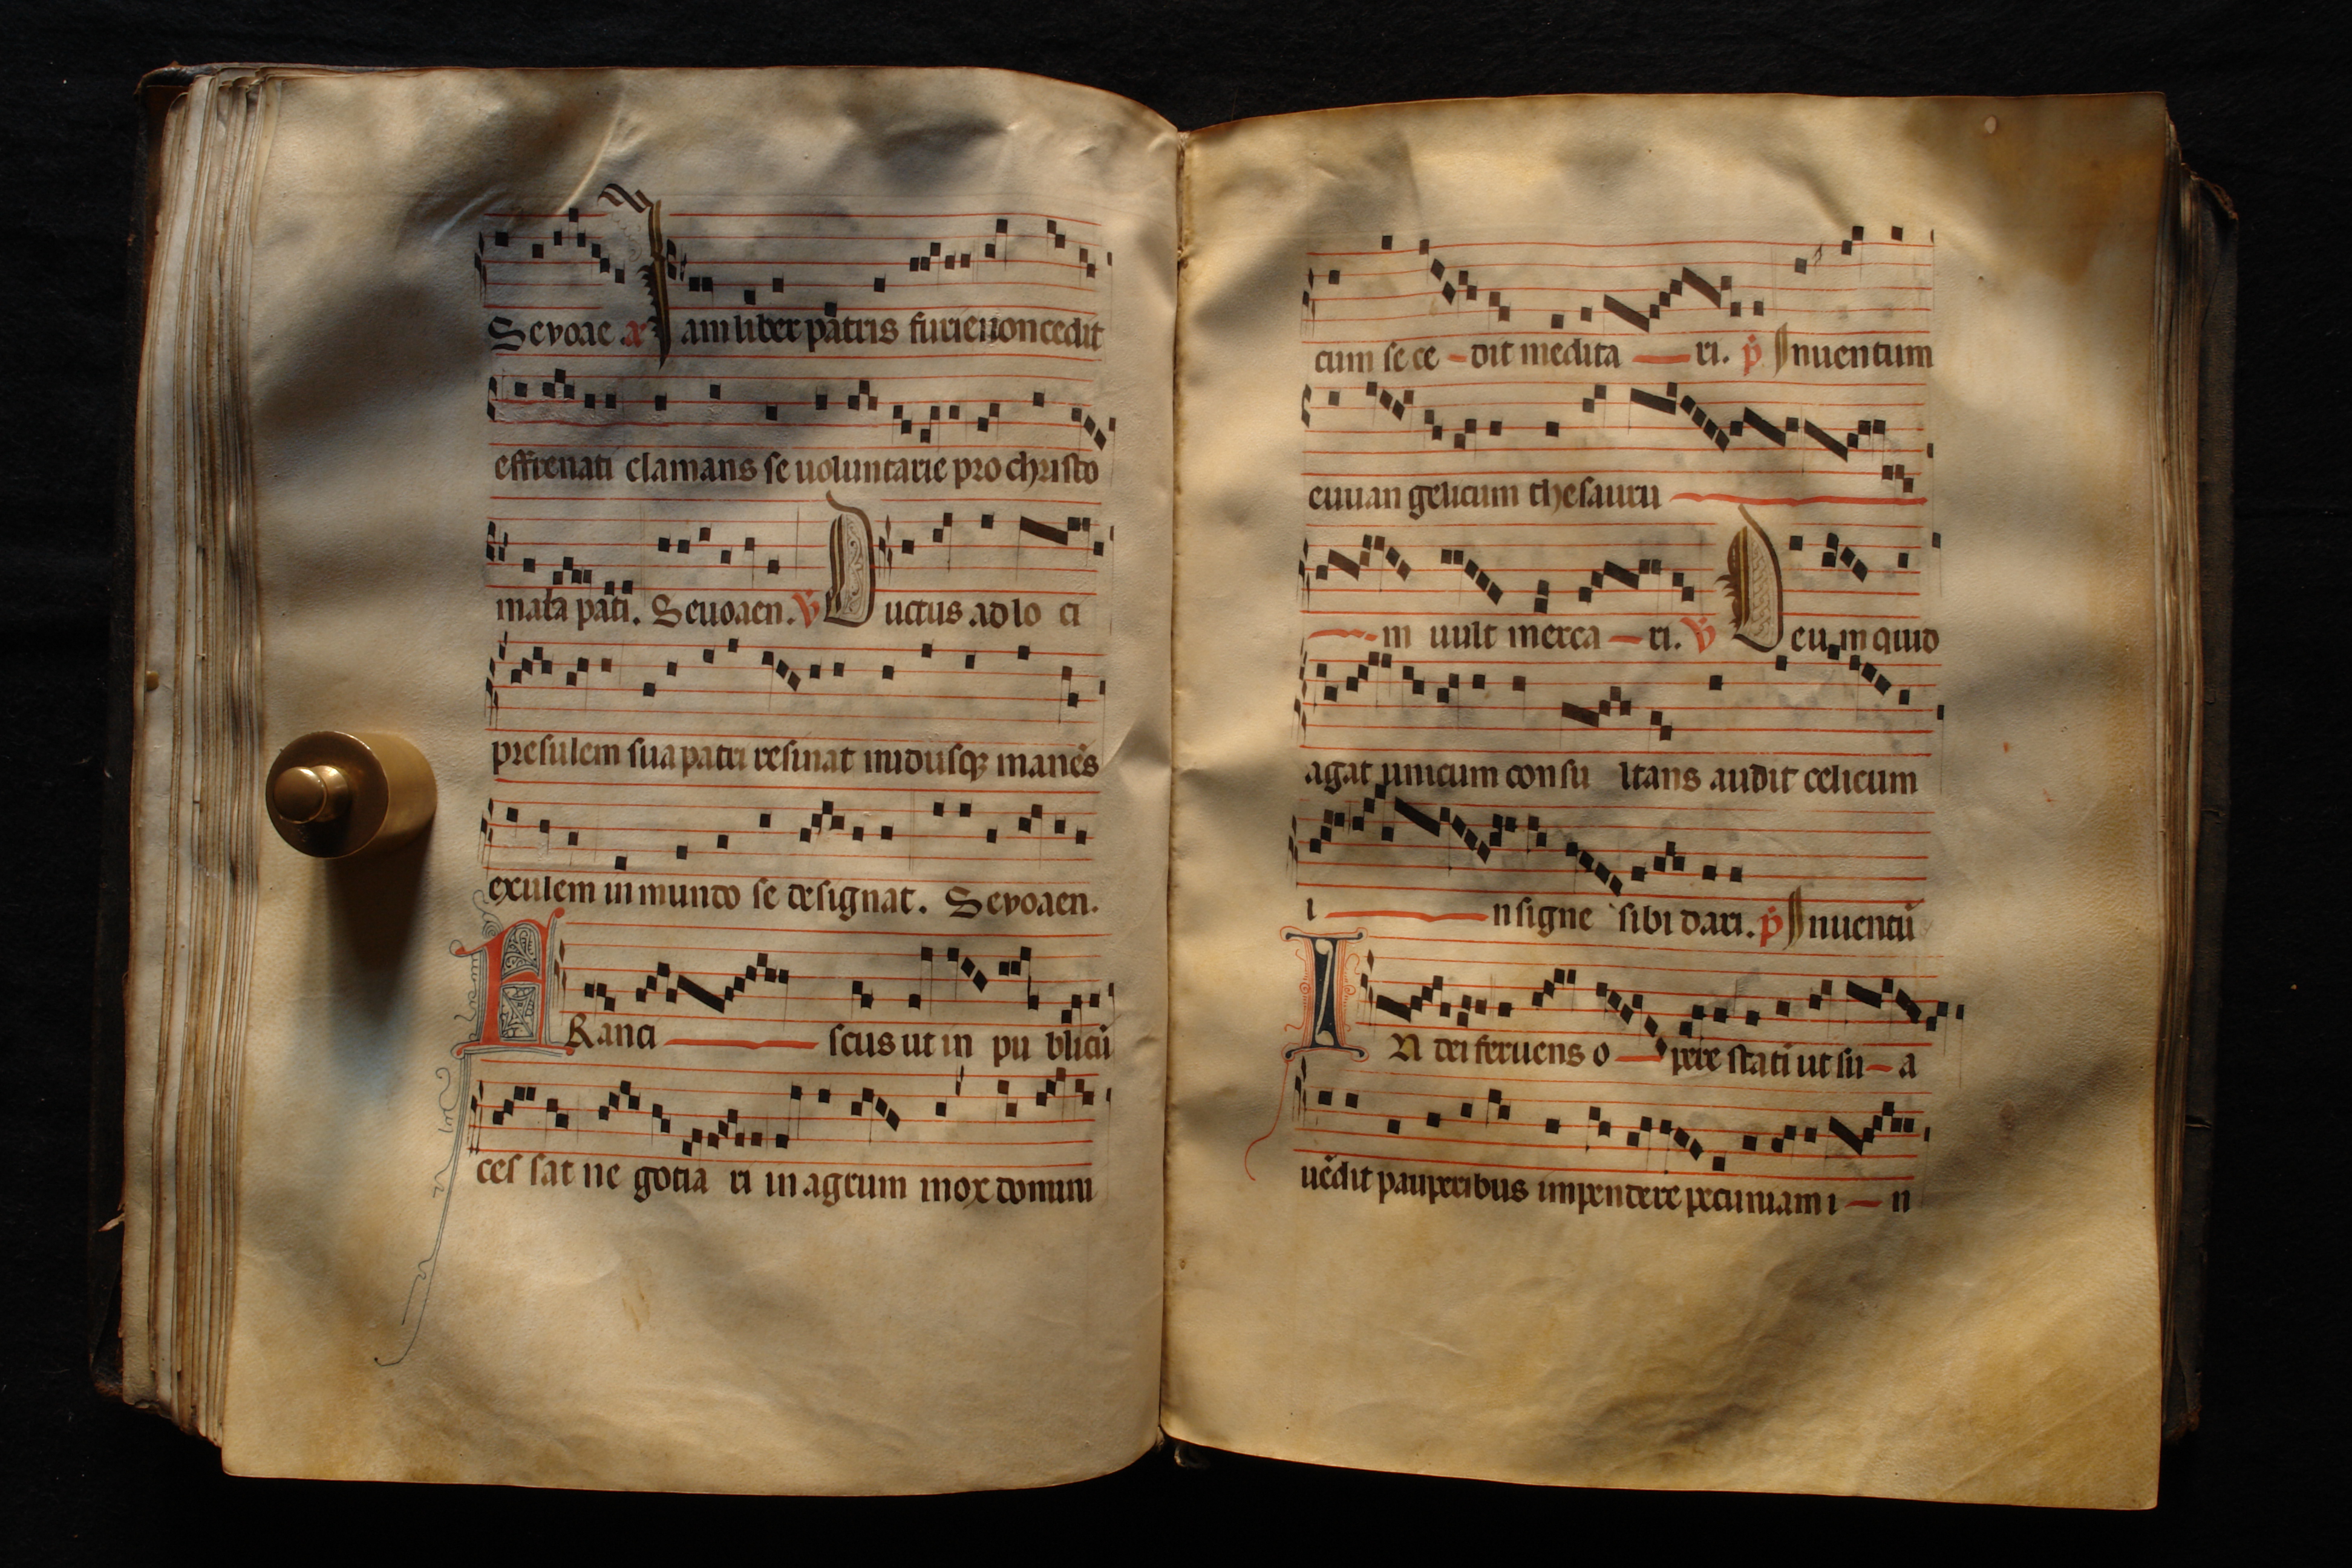 Sevoae a Iam liber patris furie non cedit
effrenati clamans se uoluntarie pro christo
mala pati. Seuoaen. v Ductus ad lo ci
presulem sua patri resinat nudusqz manēs
exulem in mundo se designat. Sevoaen.
FRanci scus ut in pu blicū
ces sat ne gocia ri in agrum mox domini
cum se ce dit medita ri. p Inuentum
euuan gelicum thesauru
m uult merca ri. v Deum quid
agat unicum consu ltans audit celicum
i nsigne sibi dari. p Inuentū
IN dei feruens o pere statī ut su a
uēdit pauperibus impendere pecuniam i n